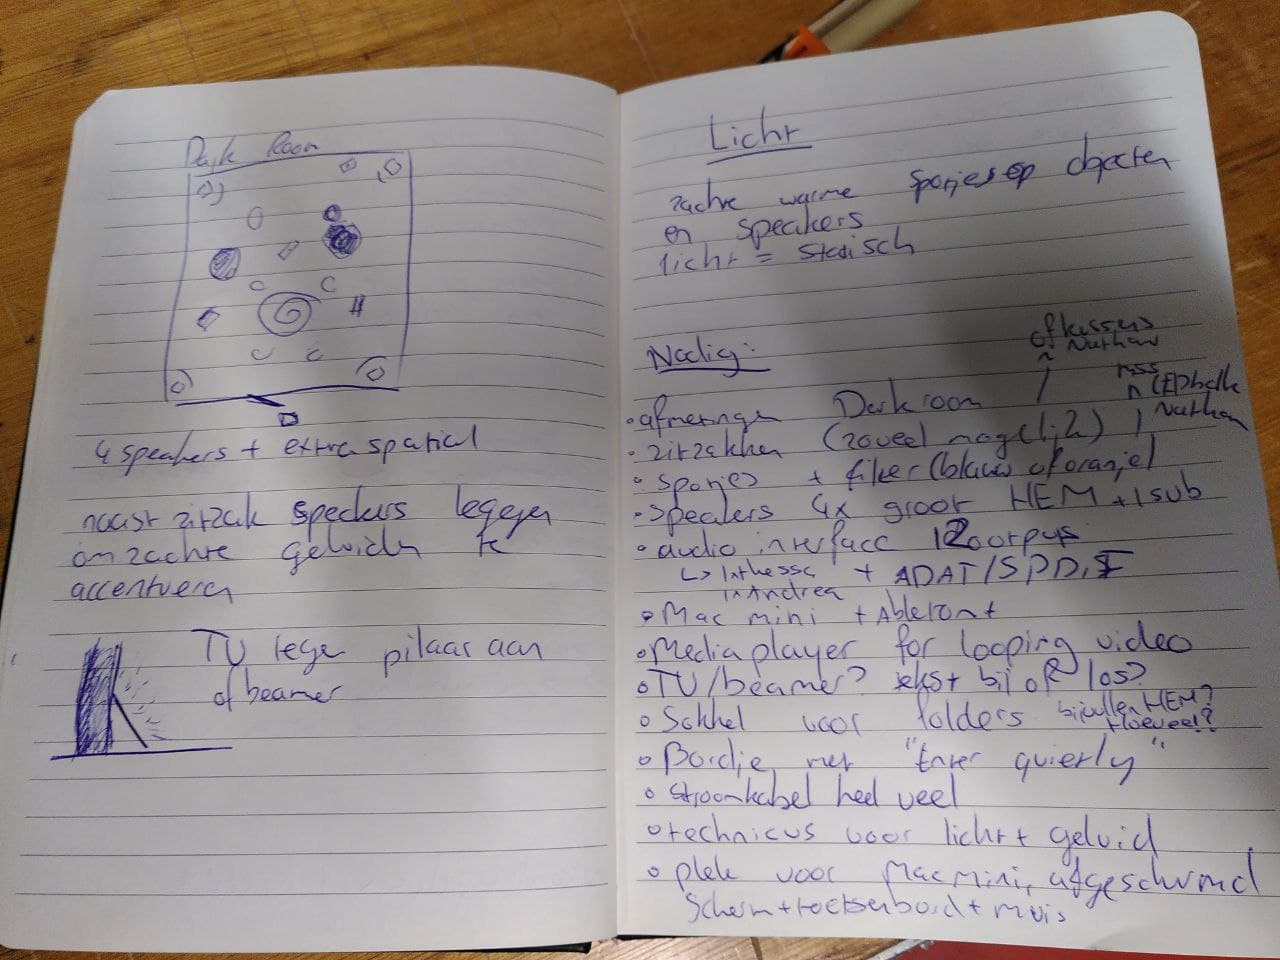 Dark Room
4 speakers + extra spatial
naast zitzak speakers leggen
om zachte geluiden te
accentueren
TV tegen pilaar aan
of beamer
Licht
zachte warme spotjes op objecten
en speakers
licht = statisch
Nodig:
of kussens
Nathan
• afmetingen Darkroom
• zitzakken (zoveel mogelijk)
Nathan
• spotjes + filter (blauw of oranje)
• speakers 4x groot HEM + 1 sub
• audio interface 12 outputs
↳ + ADAT/SPDIF
Andrea
• Mac mini + Ableton +
• Mediaplayer for looping video
• TV/beamer? tekst bij of los?
• Sokkel voor folders bijvullen HEM?
Hoeveel?
• Bordje met "Enter quietly"
• stroomkabel heel veel
• technicus voor licht + geluid
• plek voor Mac mini, afgeschermd
Scherm + toetsenbord + muis